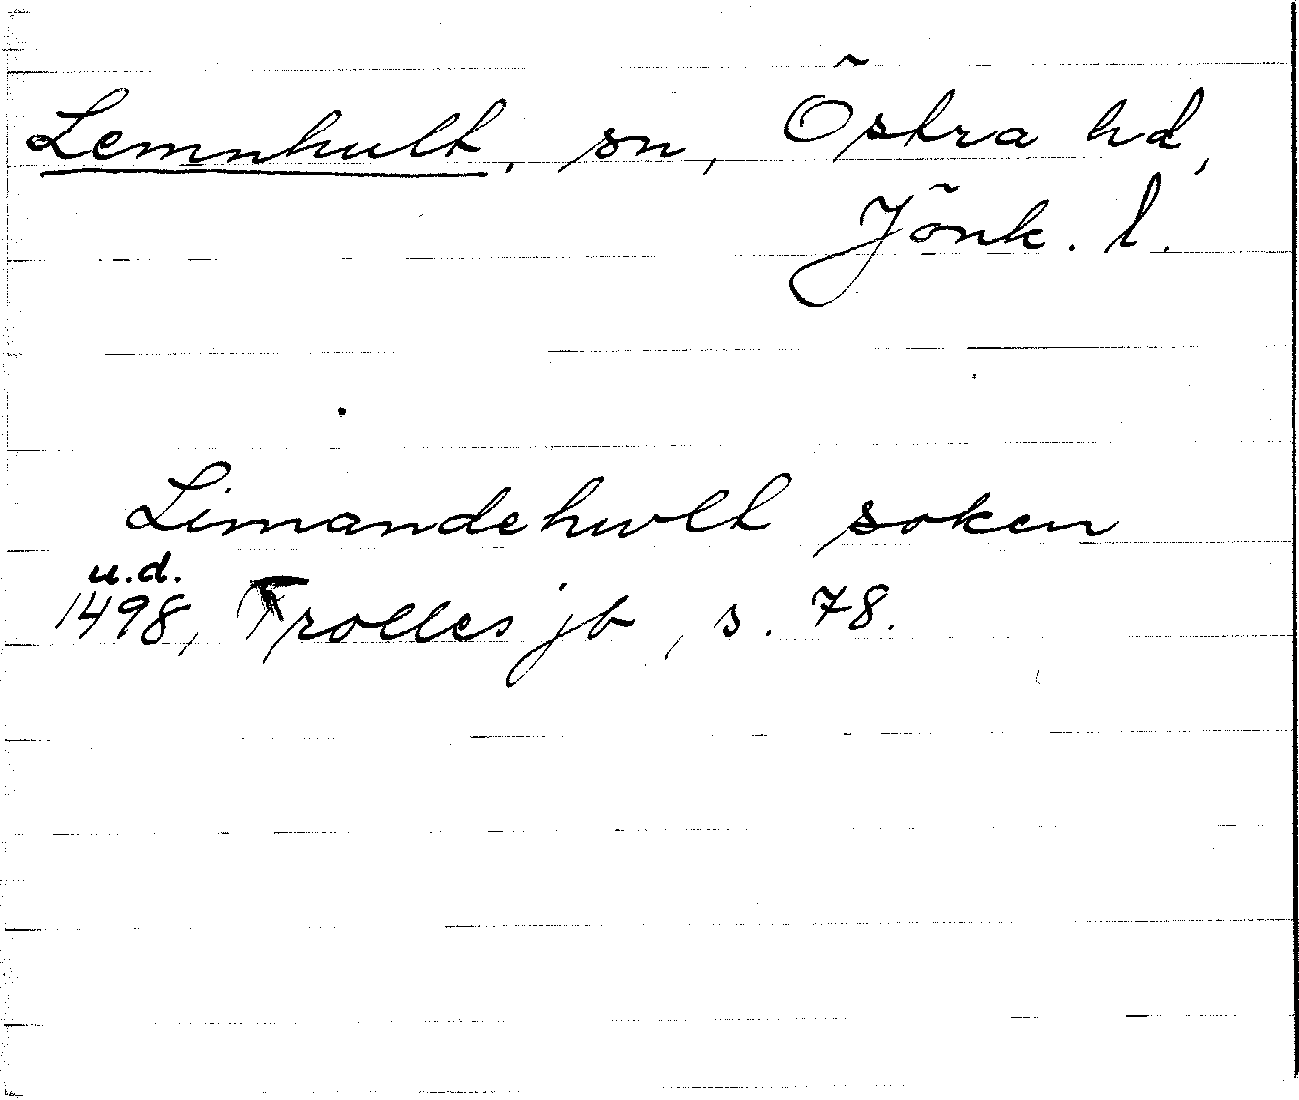 Lemnhult, sn, Östra hd,
Jönk. l.
Limandehwlt soken
u.d.
1498, Trolles jb, s. 78.